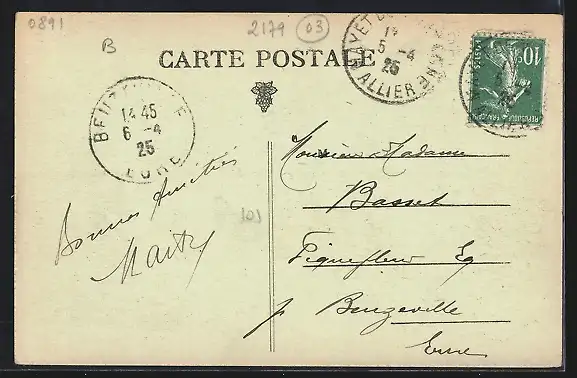 0891
2179
03
B
CARTE POSTALE
MAYET DE
17
5 -4
25
ALLIER
10c
POSTES
REPUBLIQUE FRANÇAISE
BEUZEVILLE
14 45
6 -4
25
EURE
Monsieur Madame
Basset
Fiquefleur Eq
p Beuzeville
Eure
101
Bonnes Amitiés